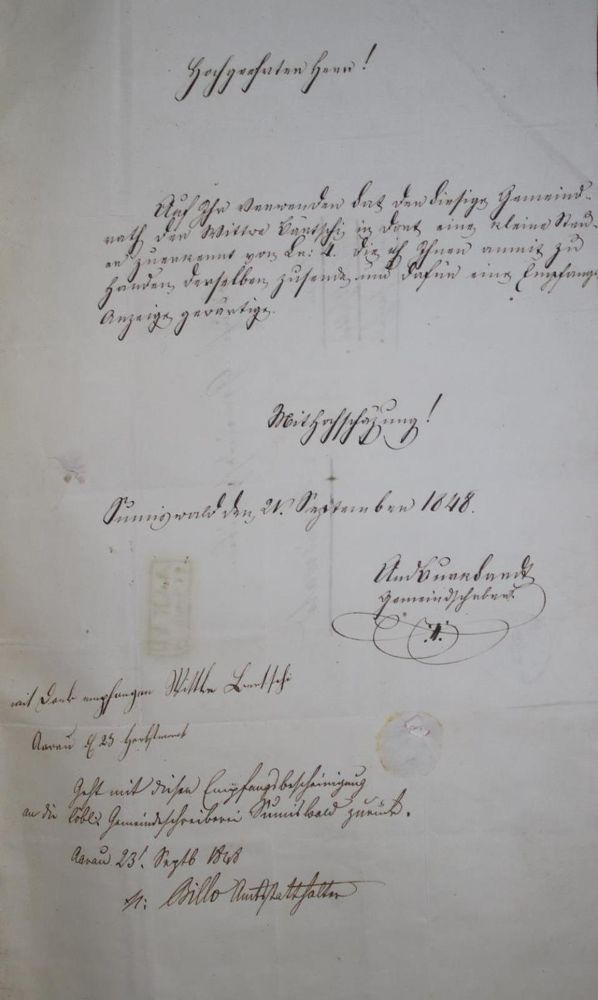 Hochgeehrten Herr!
Auf Ihr Verwenden hat der hiesige Gemeind-
rath der Wittwe Bärtschi in dort eine kleine Steu-
er zuerkennt von Ln: 4. die ich Ihnen anmit zu
handen derselben zusende und dafür eine Empfangs
Anzeige gewärtige.
Mit Hochschäzung!
Sumiswald den 21. September 1848.
Burkhardt
Gemeindschrbr.
mit Dank empfangen Wittwe Baertschi
Aarau d 23 Herbstmont
Geht mit dieser Empfangsbescheinigung
an die löbl. Gemeindeschreiberei Sumiswald zurük.
Aarau 23. Septb 1848
Billo Amtsstatthalter